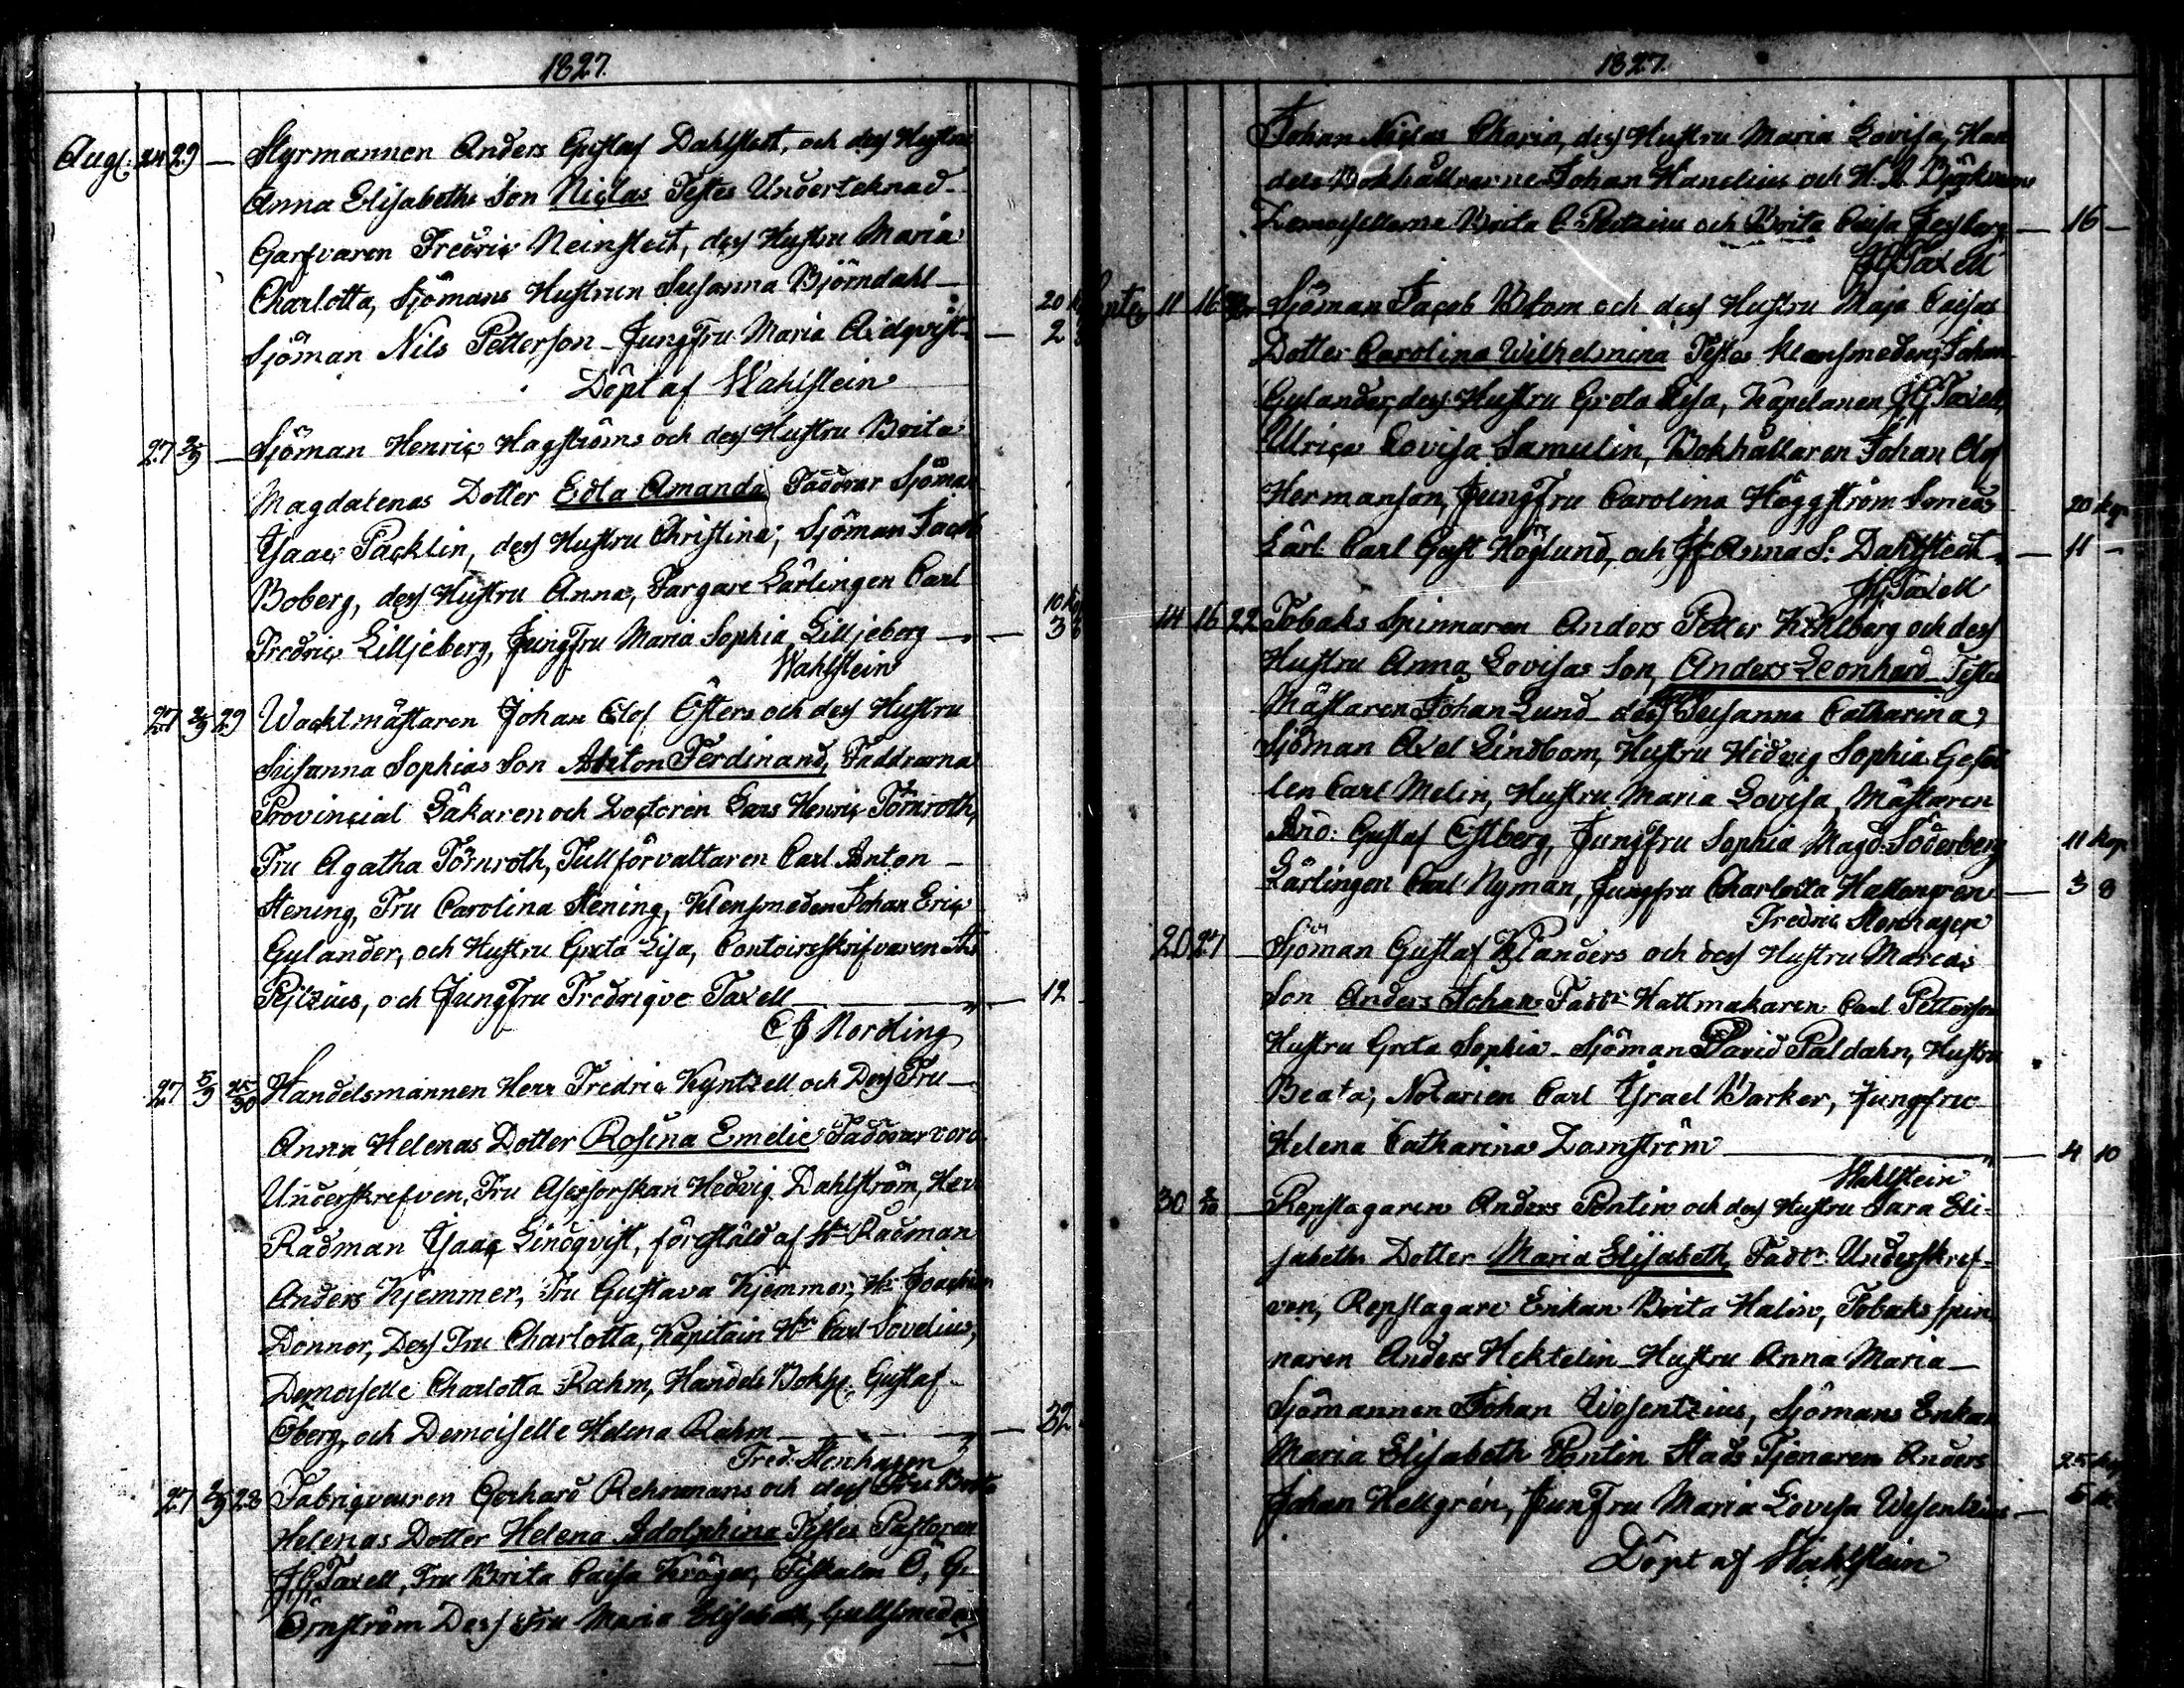 1827.
Aug. 24 29 — Styrmannen Anders Gustaf Dahlstedt, och dess Hustru
Anna Elisabeths Son Niclas Testes Underteknad
Garfvaren Fredric Neinstedt, dess Hustru Maria
Charlotta, Sjömans Hustrun Susanna Björndahl — 20 k
Sjöman Nils Petterson — Jungfru Maria Axelqvist — 2
Döpt af Wahlstein
27 2/9 — Sjöman Henric Hagströms och dess Hustru Brita
Magdalenas Dotter Edla Amanda Faddrar Sjöman
Isaac Packlin, dess Hustru Christina; Sjöman Jacob
Boberg, dess Hustru Anna, Fargare Lärlingen Carl 10 k
Fredric Lilljeberg, Jungfru Maria Sophia Lilljeberg — 3
Wahlstein
27 2/9 29 Wacktmästaren Johan Elof Östers och dess Hustru
Susanna Sophias Son Anton Ferdinand, Faddrarna
Provincial Läkaren och Doctoren Lars Henric Törnroth,
Fru Agatha Törnroth, Tullförvaltaren Carl Anton —
Stening, Fru Carolina Stening, Klensmeden Johan Eric
Gylander, och Hustru Greta Lisa, Contoirsskrifvaren
och Jungfru Fredrique Taxell — 12
Nording
27 5/9 25/30 Handelsmannen Herr Fredric Kyntzell och Dess Fru —
Anna Helenas Dotter Rosina Emelie Faddrar voro
Underskrefven, Fru Assessorskan Hedvig Dahlström, Herr
Rådman Isaac Lindqvist, förestäld af Hr Rådman
Anders Kjemmer, Fru Gustava Kjemmer, Hr Joachim
Donner, Dess Fru Charlotta, Kapitain Hr Carl Sovelius,
Demoiselle Charlotta Rahm, Handels Bokh. Gustaf
Öberg, och Demoiselle Helena Rahm — 32
Fred: Stenhagen
27 2/9 28 Fabriqveuren Gerhard Rehnmans och dess Fru Brita
Helenas Dotter Helena Adolphina Testes Pastoren
JG Taxell, Fru Brita Caisa Kröger, Fiskalen O. G.
Örnström Dess Fru Maria Elisabeth, Gullsmeden
1827.
Johan Niclas Charia, dess Hustru Maria Lovisa, Han
dels Bokhållrarne Johan Hanelius och H. A. Björkman
Demoisellerna Brita C. och Brita Caisa — 16 —
JG Taxell
Septe 11 16 Sjöman Jacob Blom och dess Hustru Maja Caisas
Dotter Carolina Wilhelmina Testes Klensmeden Johan
Gylander, dess Hustru Greta Lisa, Kapelanen JG Taxell,
Ulrica Lovisa Samulin, Bokhållaren Johan Olof
Hermanson, Jungfru Carolina Häggström 20 kop
Lärl. Carl Gust Höglund, och Jfr Anna S. Dahlstedt — 11 —
JG Taxell
14 16 22 Tobaks Spinnaren Anders Petter Kihlberg och dess
Hustru Anna Lovisas Son, Anders Leonhard Testes
Mästaren Johan Lund dess Susanna Catharina,
Sjöman Axel Lindbom, Hustru Hidvig Sophia Gesäl
len Carl Melin, Hustru Maria Lovisa, Mästaren
And: Gustaf Östberg, Jungfru Sophia Magd: Söderberg 11 kop
Lärlingen Carl Nyman, Jungfru Charlotta Hallongren — 3 8
Fredric Stenhagen
20 27 Sjöman Gustaf Klanders och dess Hustru Marias
Son Anders Johan Faddr Hattmakaren Carl Petterson
Hustru Greta Sophia — Sjöman David Paldahn, Hustru
Beata; Notarien Carl Israel Barker, Jungfru
Helena Catharina Zamström — 4 10
Wahlstein
30 2/10 — Repslagaren Anders Pontin och dess Hustru Sara Eli-
sabeths Dotter Maria Elisabeth, Faddr Underskref-
ven, Repslagare Enkan Brita Halin, Tobaksspin
naren Anders Hektelin Hustru Anna Maria —
Sjömannen Johan Wesentzius, Sjömans Enkan
Maria Elisabeth Pontin Stads Tjenaren Anders 25 kop
Johan Hellgrén, Jungfru Maria Lovisa Wesentzius — 5
Döpt af Wahlstein